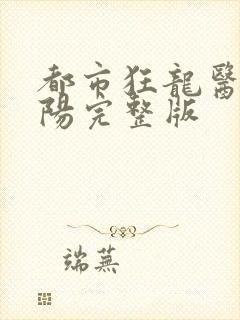 都市狂龍醫
陽完整版
端蕪